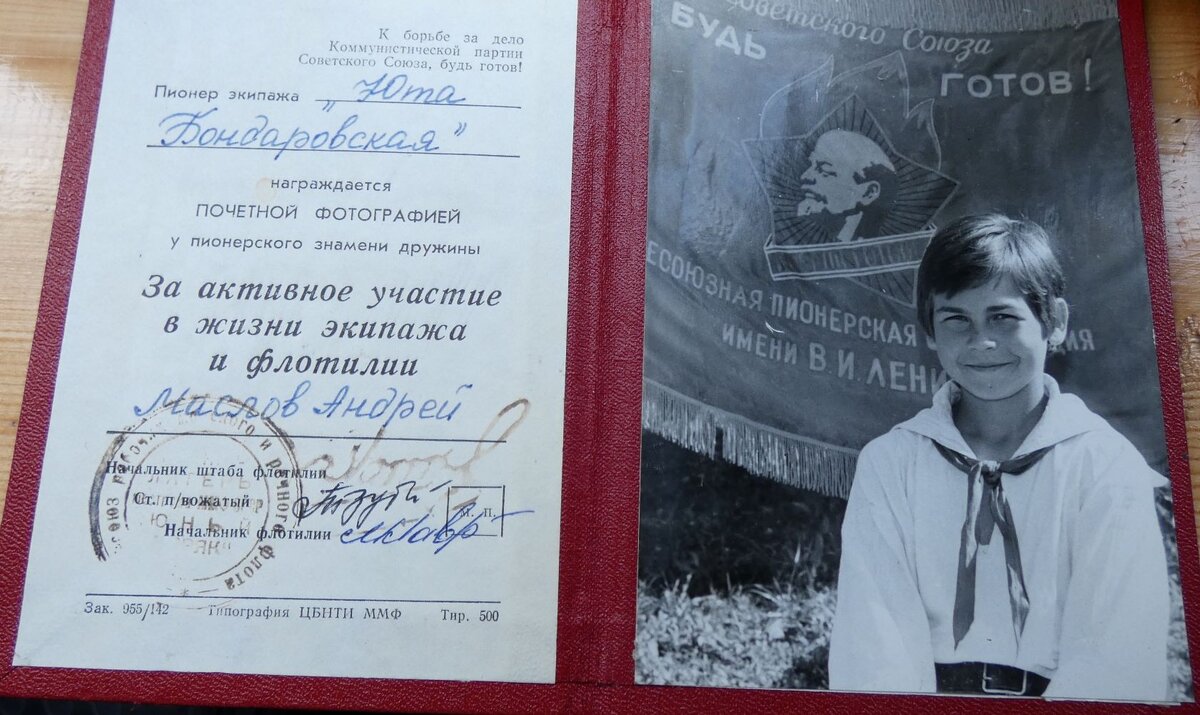 К борьбе за дело
Коммунистической партии
Советского Союза, будь готов!
Пионер экипажа „Юта
Бондаровская"
награждается
ПОЧЕТНОЙ ФОТОГРАФИЕЙ
у пионерского знамени дружины
За активное участие
в жизни экипажа
и флотилии
Маслов Андрей
Начальник штаба флотилии
Ст. п/вожатый
М. П.
Начальник флотилии
ЛАГЕРЬ
ЮНЫЙ
речного флота
Зак. 955/142 Типография ЦБНТИ ММФ Тир. 500
Советского Союза
БУДЬ
ГОТОВ!
ЕСОЮЗНАЯ ПИОНЕРСКАЯ
ИМЕНИ В.И. ЛЕНИ